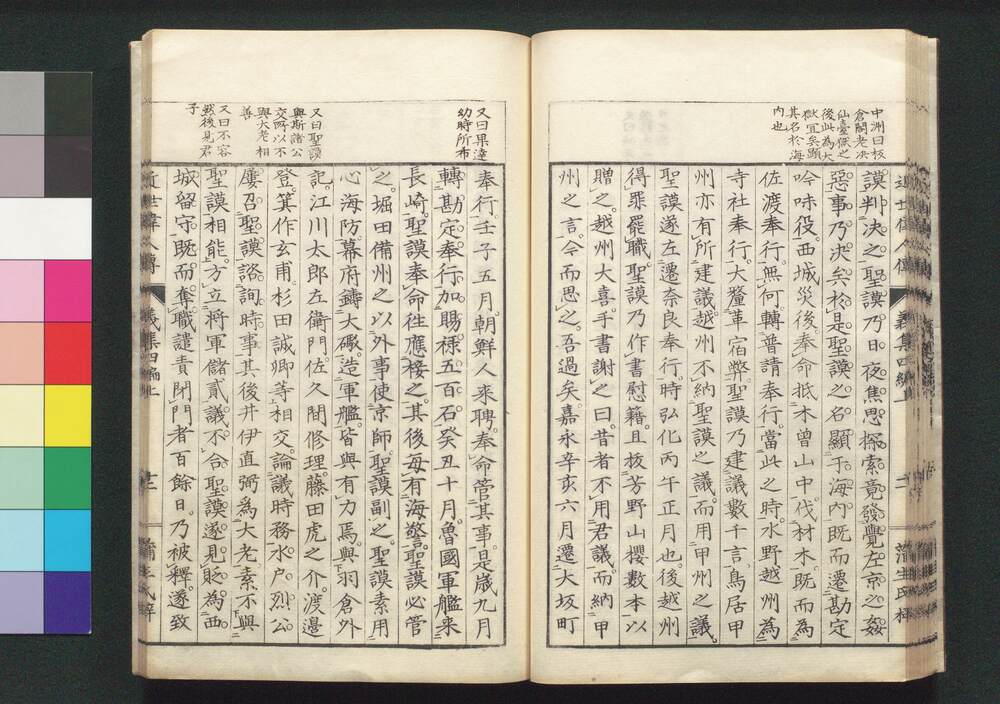 中洲曰板
倉閣老決
仙臺侯之
後此為大
獄宜矣顕
其名於海
内也
謨判決之聖謨乃日夜焦思探索竟發覺左京之姦
惡事乃決矣於是聖謨之名顯于海内既而遷勘定
吟味役西城災後奉命抵木曽山中伐材木既而為
佐渡奉行無何轉普請奉行當此之時水野越州為
寺社奉行大釐革宿弊聖謨乃建議數千言鳥居甲
州亦有所建議越州不納聖謨之議而用甲州之議
聖謨遂左遷奈良奉行時弘化丙午正月也後越州
得罪罷職聖謨乃作書慰藉且抜芳野山櫻數本以
贈之越州大喜手書謝之曰昔者不用君議而納甲
州之言今而思之吾過矣嘉永辛亥六月遷大坂町
又曰果達
幼時所布
又曰聖謨
與斯諸公
交所以不
與大老相
善
又曰不容
然後見君
子
奉行壬子五月朝鮮人来聘奉命管其事是歳九月
轉勘定奉行加賜禄五百石癸丑十月魯國軍艦来
長崎聖謨奉命往應接之其後毎有海警聖謨必管
之堀田備州之以外事使京師聖謨副之聖謨素用
心海防幕府鑄大礟造軍艦皆與有力焉與羽倉外
記江川太郎左衛門佐久間修理藤田虎之介渡邊
登箕作玄甫杉田誠卿等相交論議時務水戸烈公
屢召聖謨諮詢時事其後井伊直弼為大老素不與
聖謨相能方立將軍儲貳議不合聖謨遂見貶為西
城留守既而奪職譴責閉門者百餘日乃被釋遂致
近世偉人傳
義集四編上